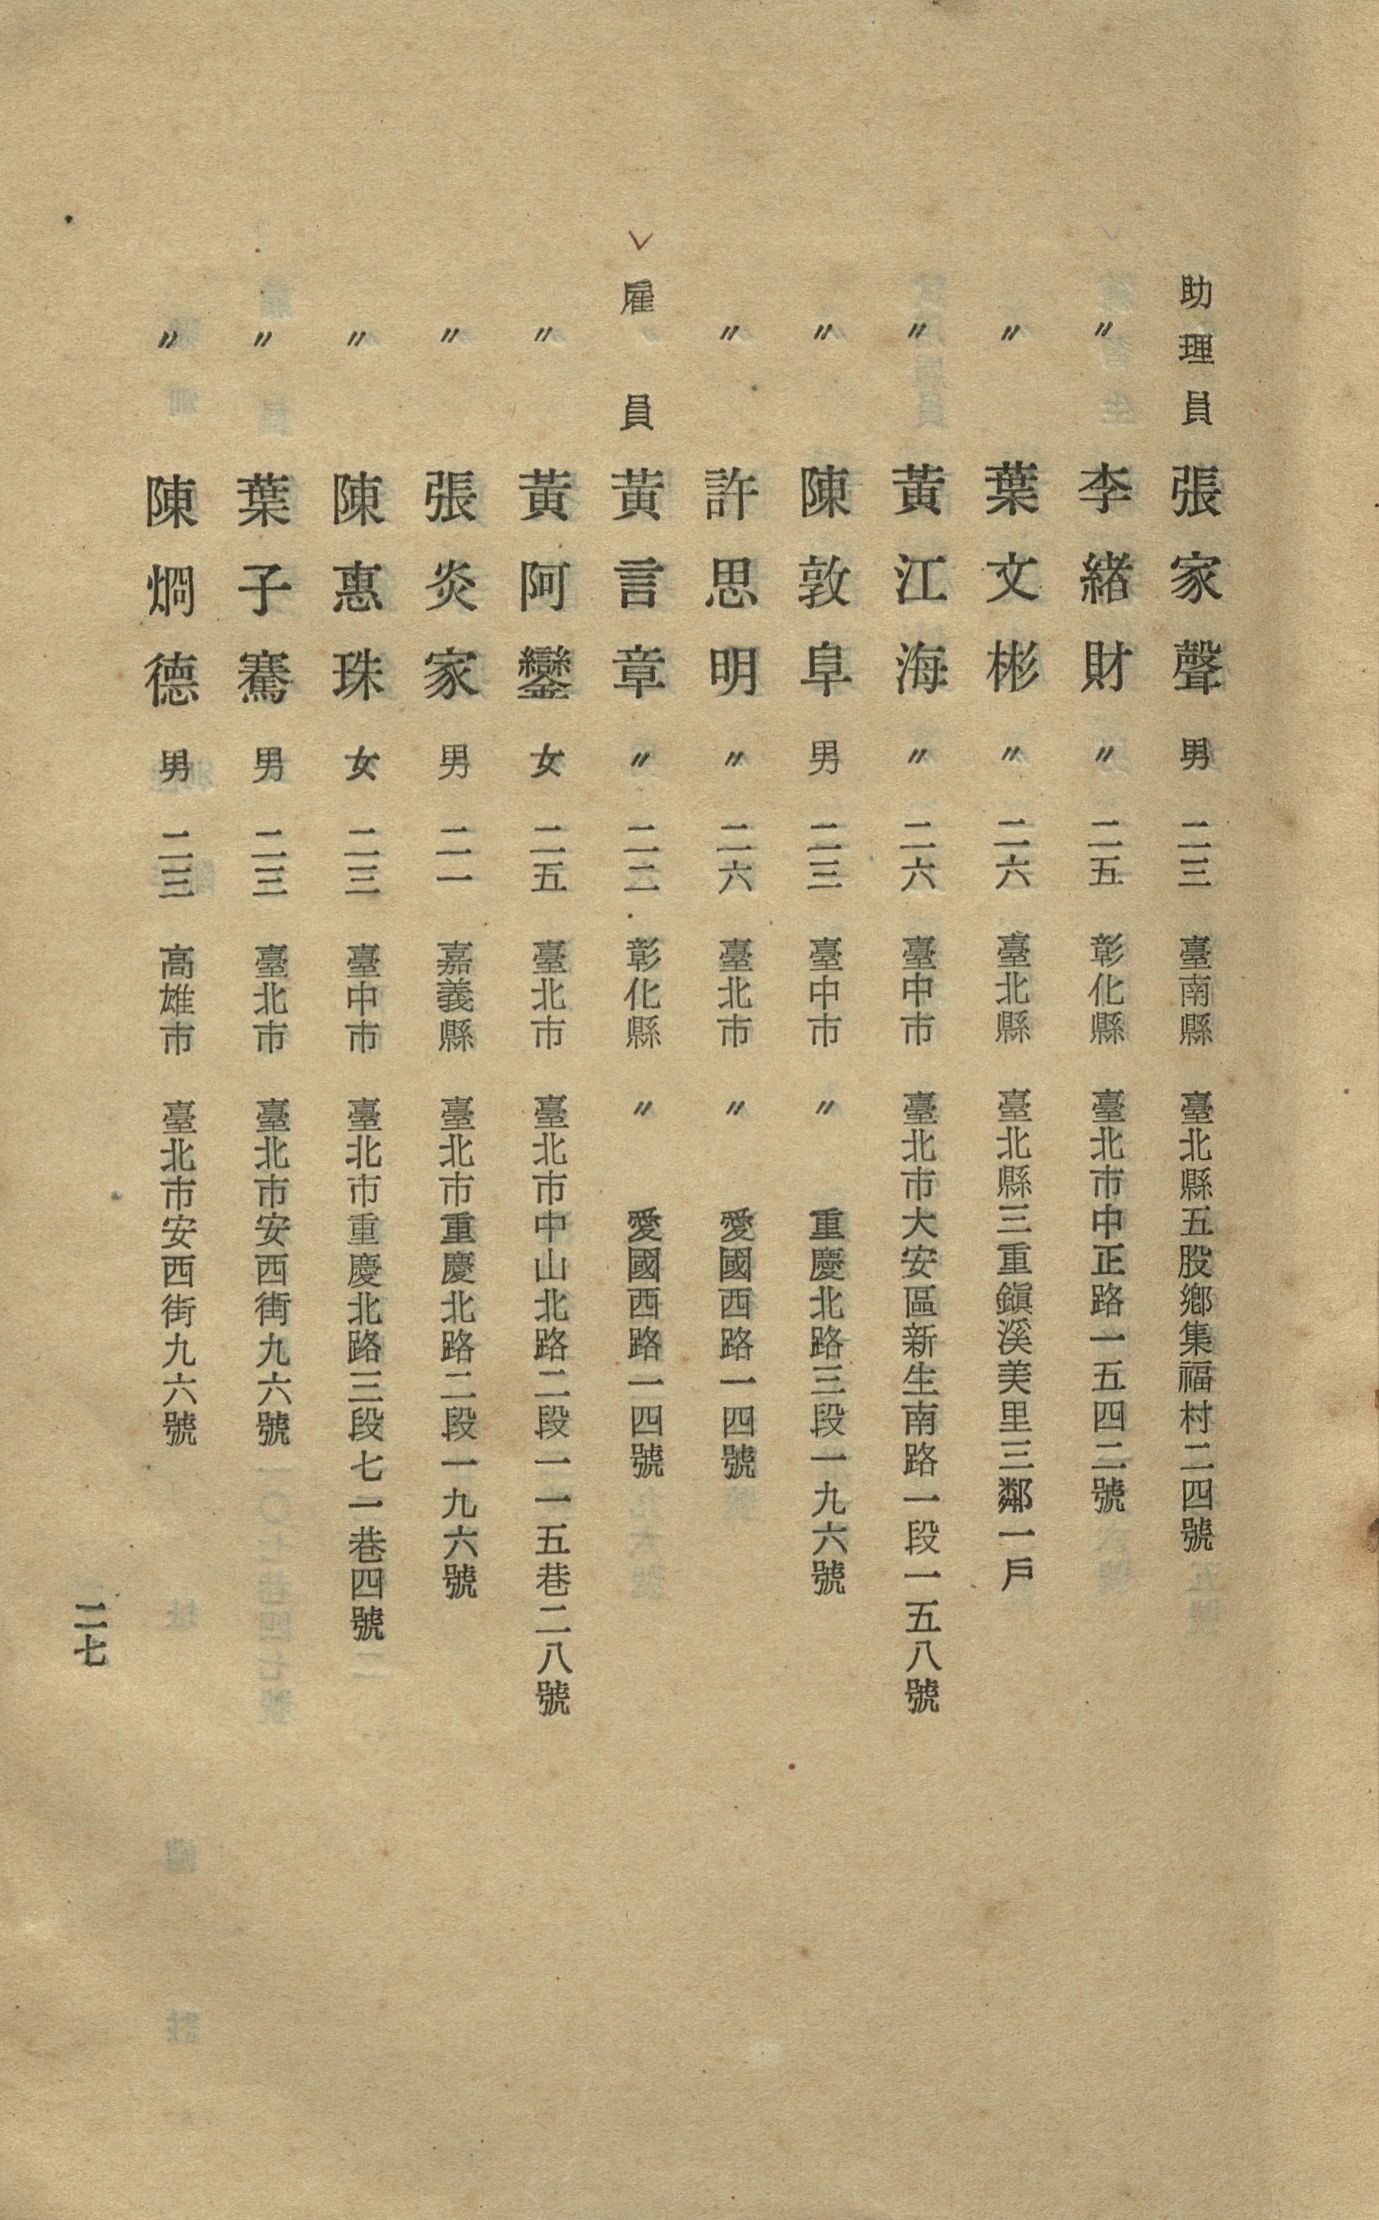 助理員 張家聲 男 二三 臺南縣 臺北縣五股鄉集福村二四號
〃 李緒財 〃 二五 彰化縣 臺北市中正路一五四二號
〃 葉文彬 〃 二六 臺北縣 臺北縣三重鎭溪美里三鄰一戶
〃 黃江海 〃 二六 臺中市 臺北市大安區新生南路一段一五八號
〃 陳敦阜 男 二三 臺中市 〃 重慶北路三段一九六號
〃 許思明 〃 二六 臺北市 〃 愛國西路一四號
雇員 黃言章 〃 二二 彰化縣 〃 愛國西路一四號
〃 黃阿鑾 女 二五 臺北市 臺北市中山北路二段一一五巷二八號
〃 張炎家 男 二一 嘉義縣 臺北市重慶北路二段一九六號
〃 陳惠珠 女 二三 臺中市 臺北市重慶北路三段七一巷四號
〃 葉子騫 男 二三 臺北市 臺北市安西街九六號
〃 陳烱德 男 二三 高雄市 臺北市安西街九六號
二七